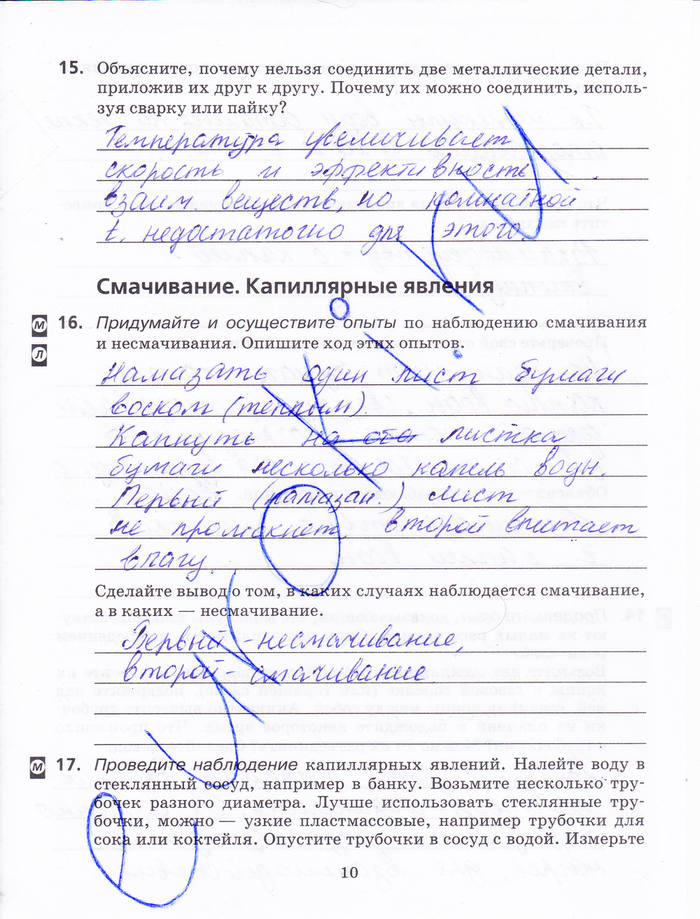 15. Объясните, почему нельзя соединить две металлические детали,
приложив их друг к другу. Почему их можно соединить, исполь-
зуя сварку или пайку?
Температура увеличивает
скорость и эффективность
взаим. веществ, но комнатной
t. недостаточно для этого.
Смачивание. Капиллярные явления
М
Л
16. Придумайте и осуществите опыты по наблюдению смачивания
и несмачивания. Опишите ход этих опытов.
Намазать один лист бумаги
воском (теплым).
Капнуть на оба листка
бумаги несколько капель воды.
Первый (намазан.) лист
не промокнет, второй впитает
влагу.
Сделайте вывод о том, в каких случаях наблюдается смачивание,
а в каких — несмачивание.
Первый - несмачивание,
второй - смачивание
М
17. Проведите наблюдение капиллярных явлений. Налейте воду в
стеклянный сосуд, например в банку. Возьмите несколько тру-
бочек разного диаметра. Лучше использовать стеклянные тру-
бочки, можно — узкие пластмассовые, например трубочки для
сока или коктейля. Опустите трубочки в сосуд с водой. Измерьте
10